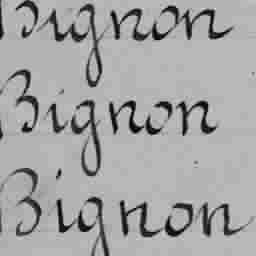 Bignon
Bignon
Bignon